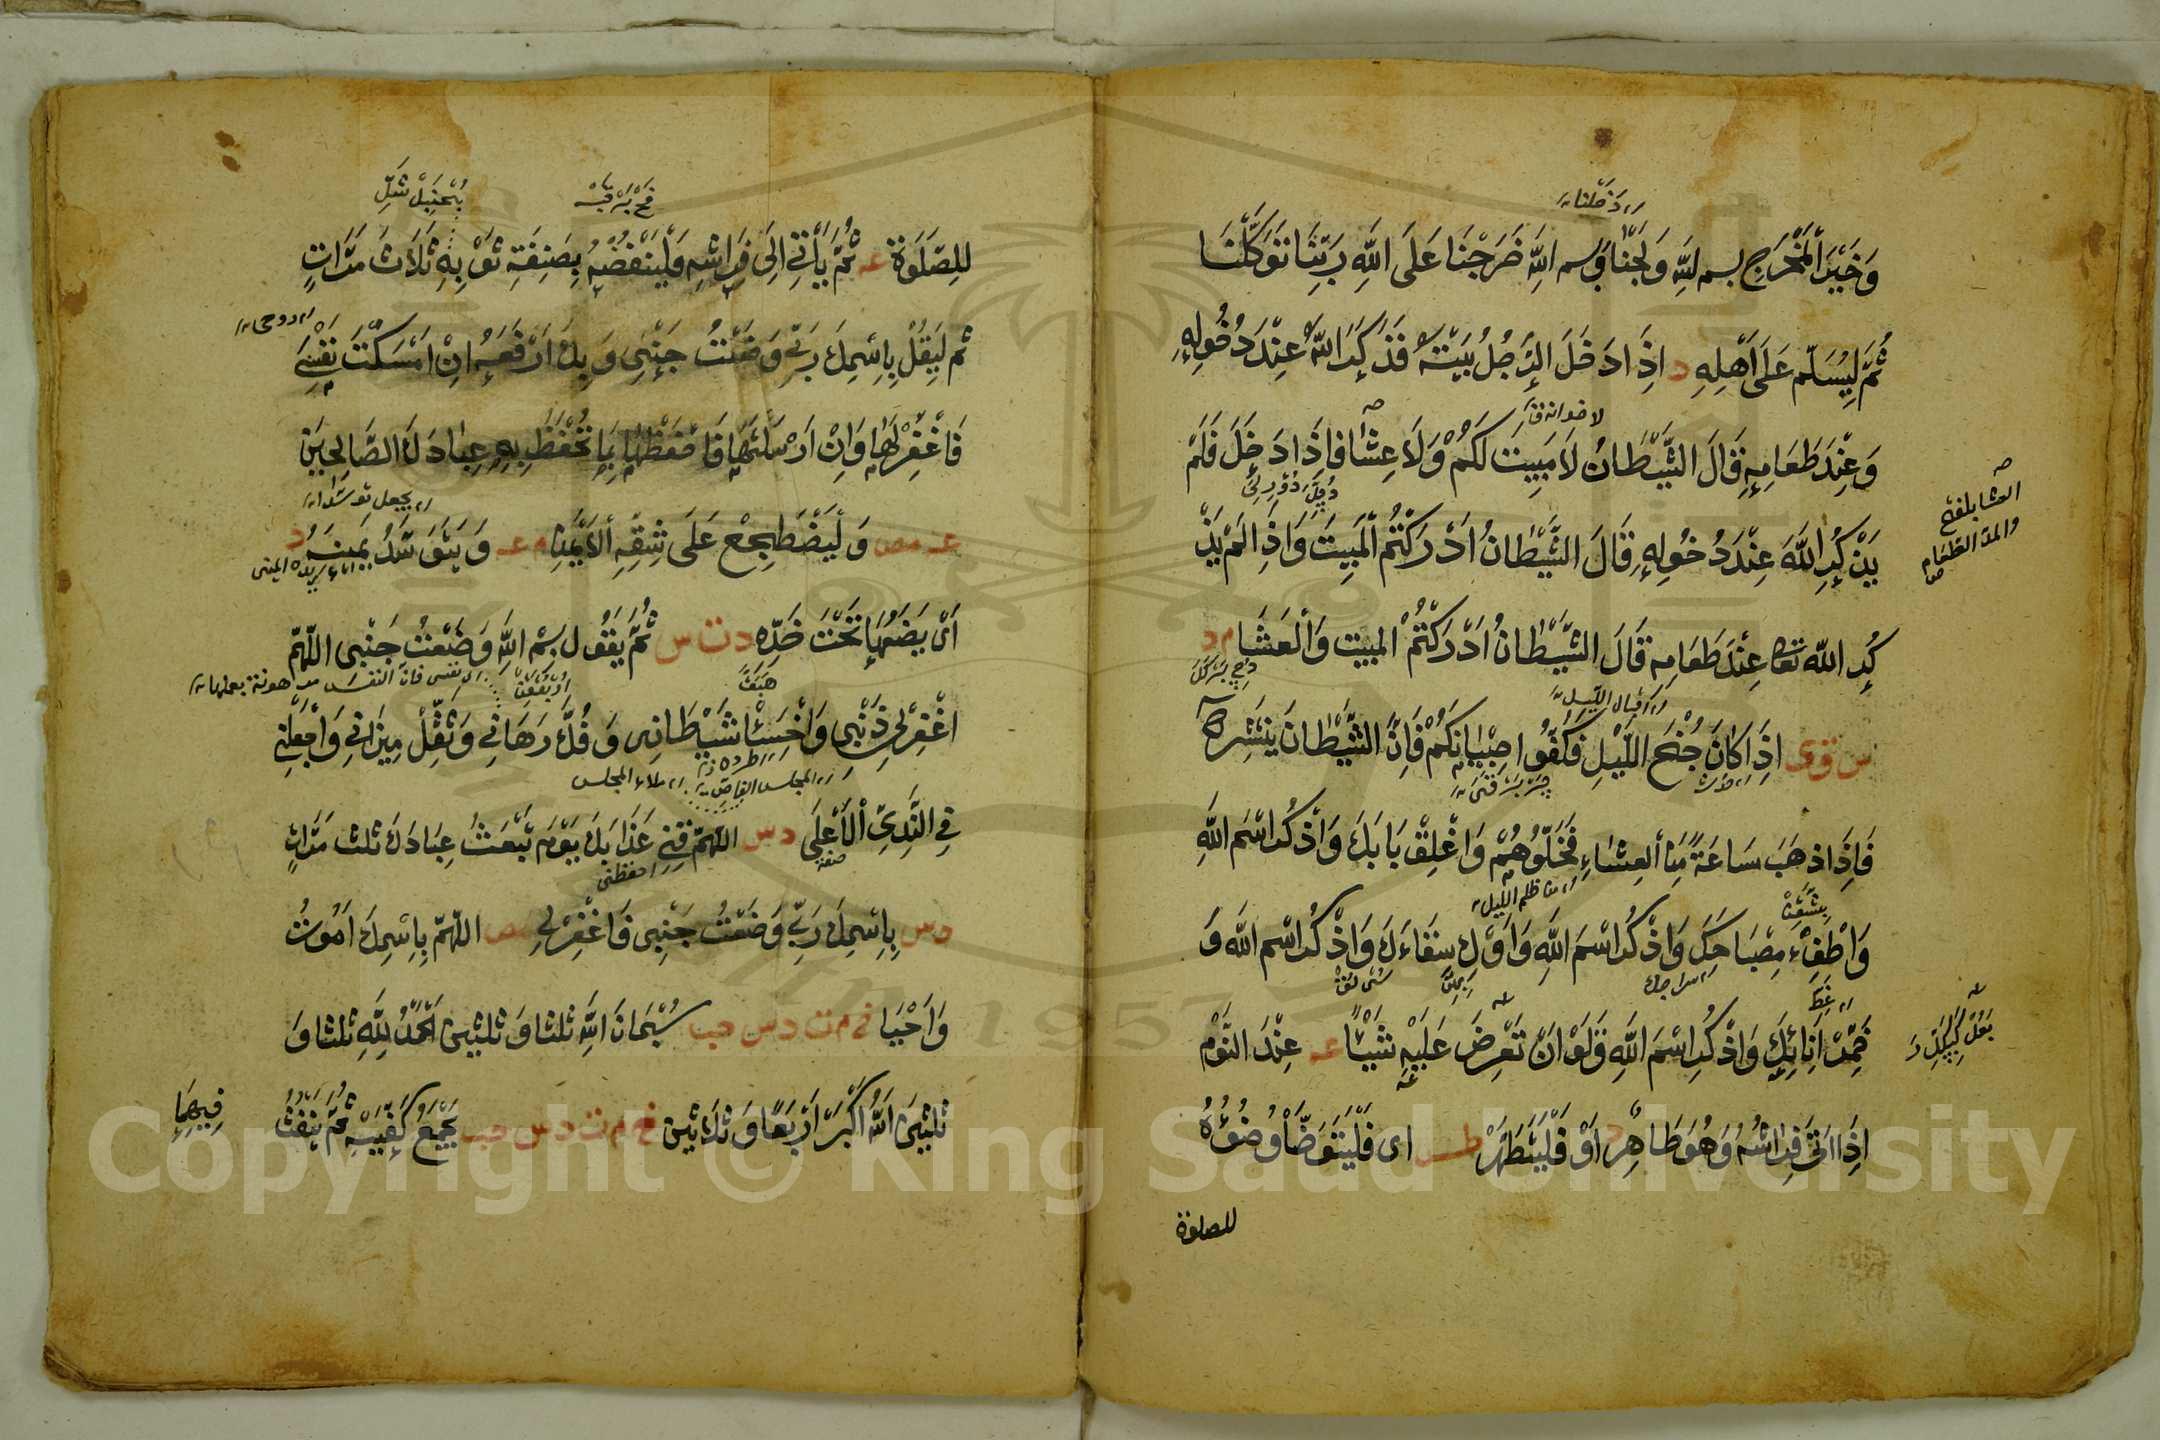 دخلنا
وَخَيْرَ الْمَخْرَجِ بسم لله وَلَجْنَا وَبسم اللهِ خَرَجْنَا عَلَى اللهِ رَبِّنَا تَوَكَّلْنَا
ثُمَّ لِيُسَلِّم عَلَى اَهْلِهِ د اِذَا دَخَلَ الرَّجُلُ بَيْتَهُ فَذَكَرَ اللهَ عِنْدَ دُخُولِهِ
وَعِنْدَ طَعَامِهِ قَالَ الشَّيْطَانُ لَا مَبِيتَ لَكُمْ وَلَا عِشَا فَاِذَا دَخَلَ فَلَمْ
العشا بلفتح
والمد الطعام
يَذْكُرِ اللهَ عِنْدَ دُخُولِهِ قَالَ الشَّيْطَانُ اَدْرَكْتُمُ الْمَبِيتَ وَاِذَا لَمْ يَذْ
كُرِ الله تعا عِنْدَ طَعَامِهِ قَالَ الشَّيْطَانُ اَدْرَكْتُمْ المبيت وَالْعَشَا م د
اقبال الليل
س ق ى اِذَا كَانَ جُنْحُ اللَّيْلِ فَكُفُّوا صِبْيَانَكُمْ فَاِنَّ الشَّيْطَانَ يَنْتَشِرُ
فَاِذَا ذهَبَ سَاعَةً مِنَ الْعِشَاءِ فَخَلُّوهُمْ وَاَغْلِقْ بَابَكَ وَاذْكُرِ اسْمَ اللهِ
من ظلم الليل
وَاَطْفِءْ مِصْبَاحَكَ وَاذْكُرِ اسْمَ اللهِ وَاَوْكِ سِقَاءَكَ وَاذْكُرِ اسْم الله وَ
سراجك
خَمِّرْ اِنَائِكَ وَاذْكُرِ اسْمَ اللهِ وَلَوْ اَنْ تَعْرِضَ عَلَيْهِ شَيْئًا عـ عِنْدَ النَّوْم
اِذَا اَتَى فِرَاشَهُ وَهُوَ طَاهِرٌ د اَوْ فَلْيَتَطَهَّرْ طس اى فَلْيَتَوَضَّأْ وُضُوْءَهُ
للصلوة
لِلصَّلَوةِ عـ ثُمَّ يَأْتِي اِلَى فِرَاشِهِ فَلْيَنْفُضْهُ بِصَنِفَةِ ثَوْبِهِ ثَلَاثَ مَرَّاتٍ
روحى
ثم لِيَقُلْ بِاسْمِكَ رَبِّي وَضَعْتُ جَنْبِي وَبِكَ اَرْفَعُهُ اِنْ اَمْسَكْتَ نَفْسِي
فَاغْفِرْ لَهَا وَاِنْ اَرْسَلْتَهَا فَاحْفَظْهَا بِمَا تَحْفَظُ بِهِ عِبَادَكَ الصَّالِحِينَ
عـ مص وَلْيَضْطَجِعْ عَلَى شِقِّهِ الْاَيْمَنِ م عـ وَيَتَوَسَّدُ يَمِينَهُ د
اى يده اليمنى
اَىْ يَضَعُهَا تَحْتَ خَدِّهِ د ت س ثُمَّ يَقُول بِسْمِ اللهِ وَضَعْتُ جَنْبِى اللّهمّ
اى نفسى فان النفس مرهونة بعملها
اغْفِرْ لِي ذَنْبِي وَاَخْسَئْ شَيْطَانِى وَفُكَّ رَهَانِي وَثَقِّلْ مِيزَانِي وَاجْعَلْنِي
فِي النَّدِيِّ الْاَعْلَى د س اللهُمَّ قِنِي عَذَابَكَ يَوْمَ تَبْعَثُ عِبَادَكَ ثلث مَرَّاتٍ
احفظنى
د س بِاسْمِكَ رَبِّي وَضَعْتُ جَنْبِى فَاغْفِرْ لِي مص اللّهمّ بِاسْمِكَ اَمُوتُ
وَاَحْيَا خ م ت د س مص سُبْحَانَ اللهِ ثلثا وَثلثين اَلْحَمْدُ لِلهِ ثلثا وَ
ثلثين اَللهُ اَكْبَرَ اَرْبَعًا وَثَلَاثِينَ خ م ت د س حب يَجْمَعُ كَفَّيْهِ ثُمَّ يَنْفُثُ
فِيهِمَا